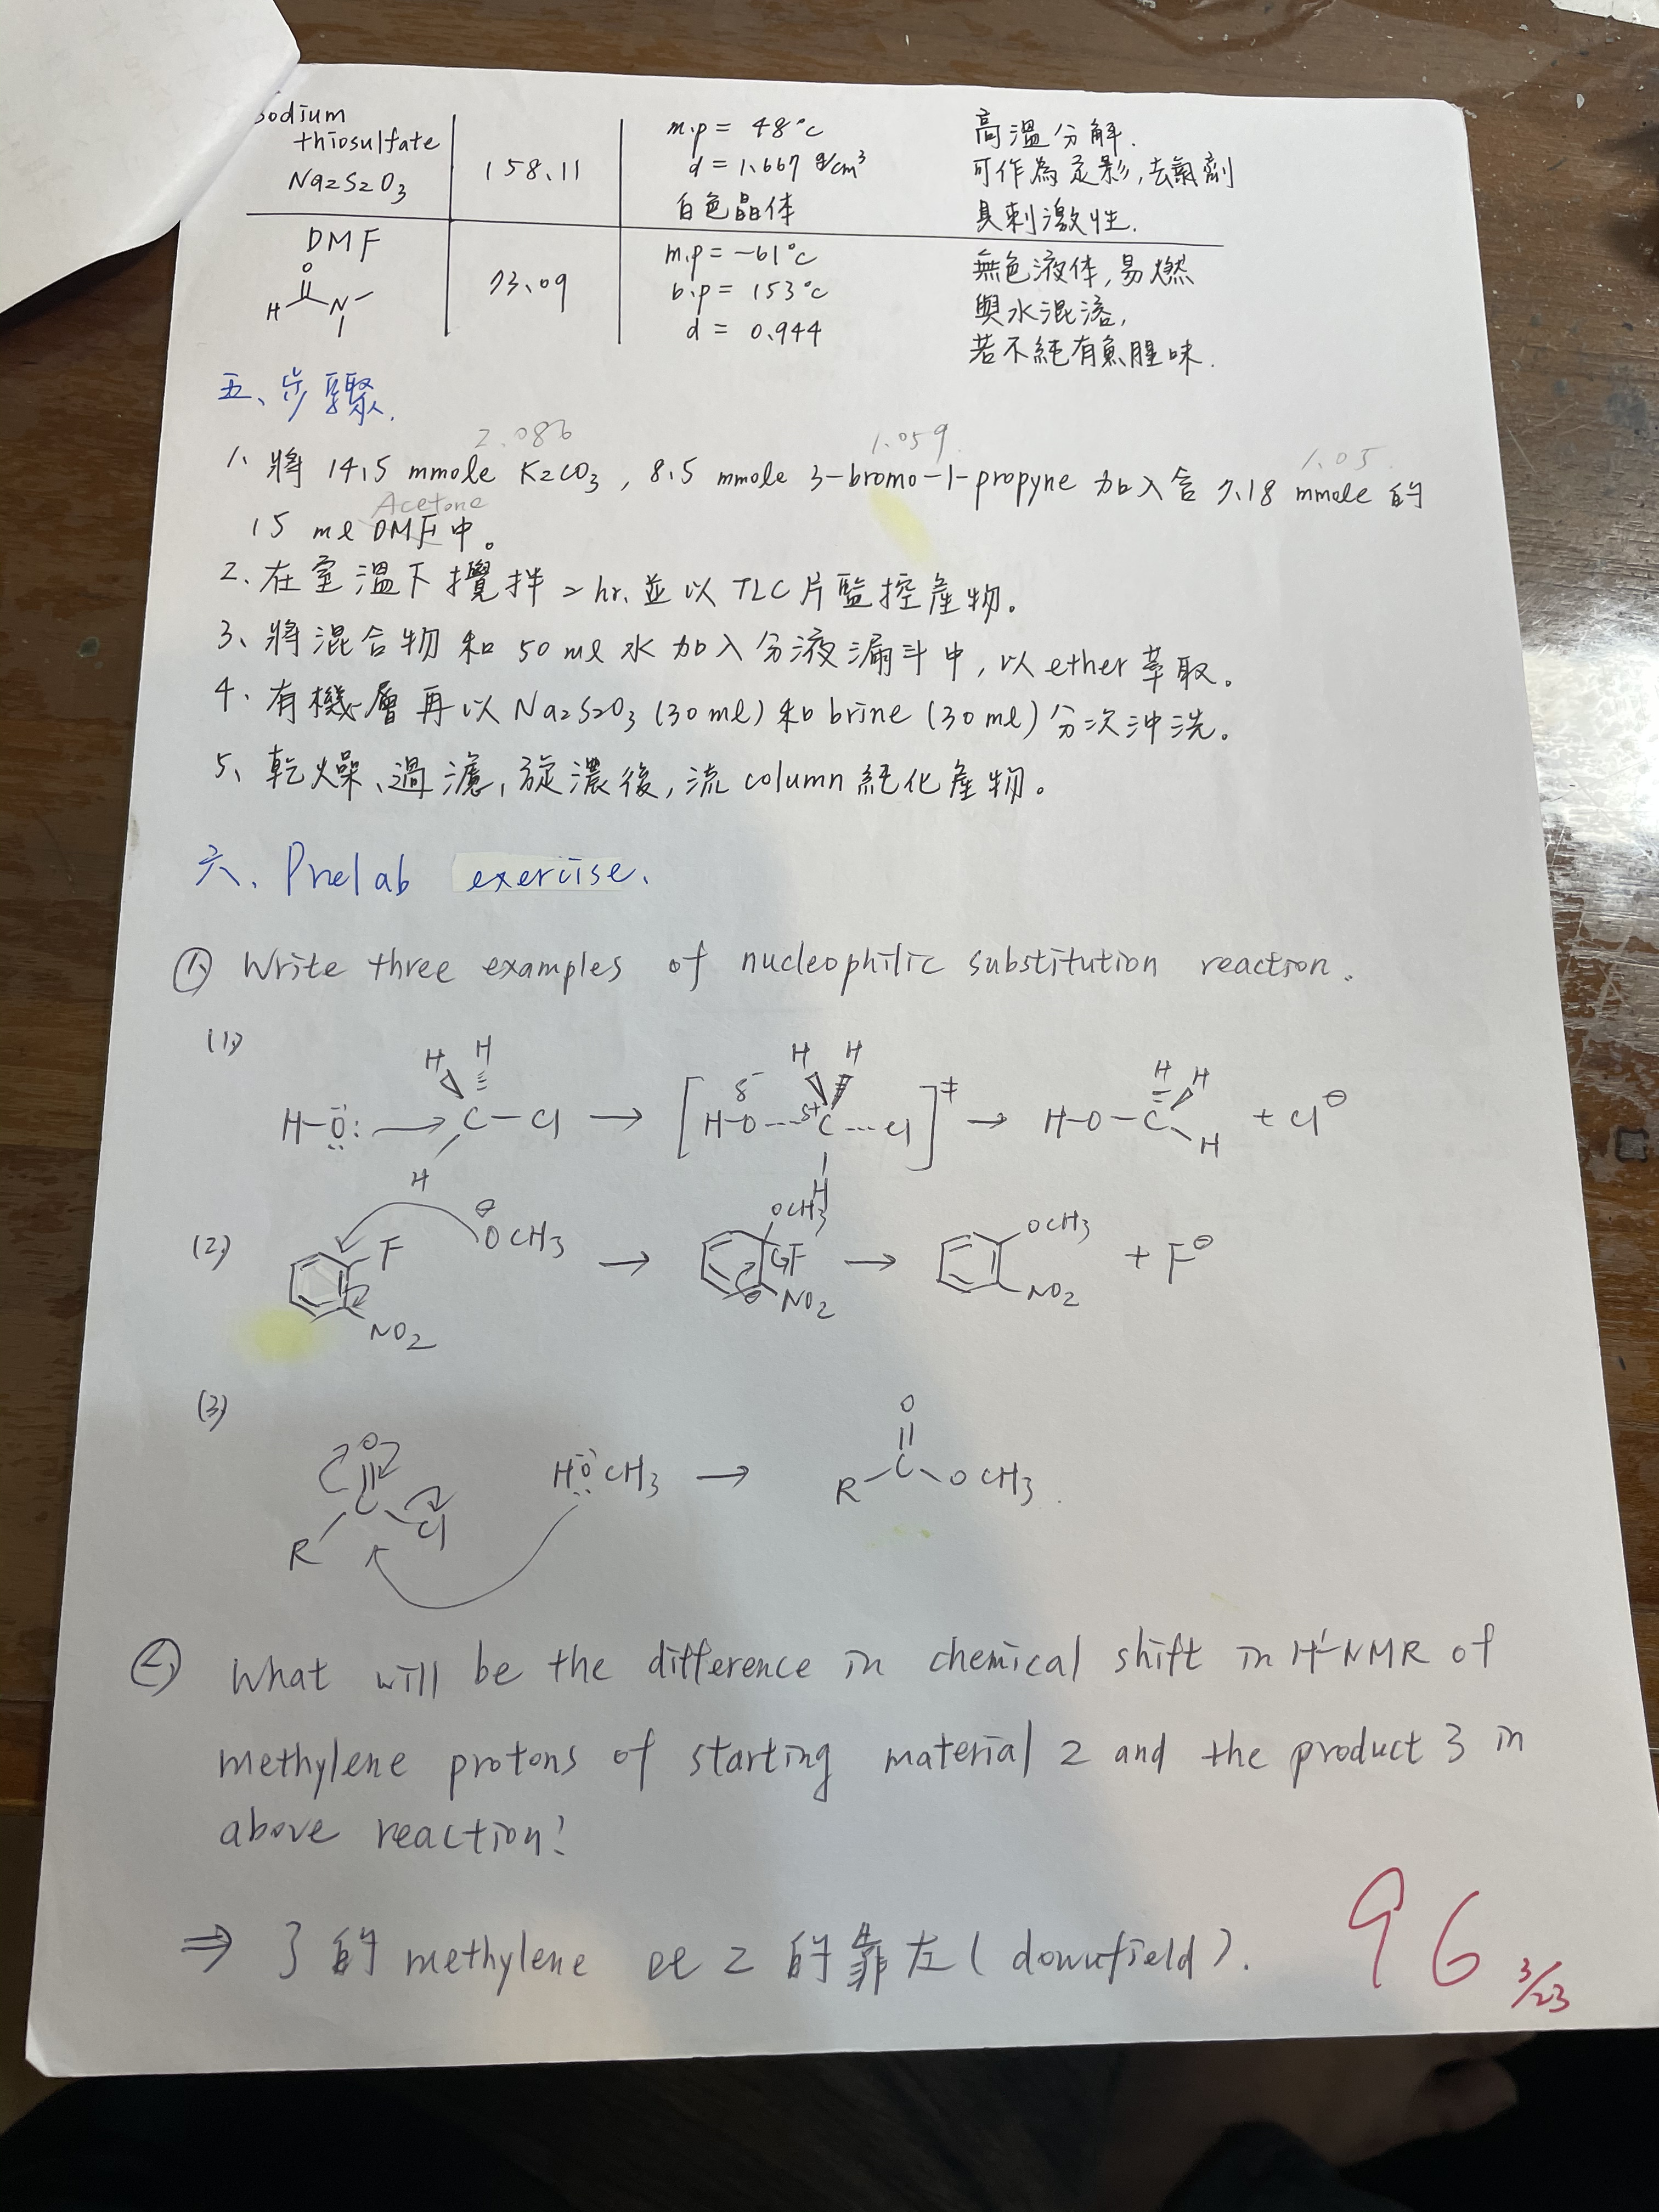 sodium
thiosulfate
Na2S2O3
158.11
m.p = 48°c
d = 1.667 g/cm³
白色晶体
高溫分解.
可作為定影,去氯劑
具刺激性.
DMF
O
H N
73.09
m.p = -61°c
b.p = 153°c
d = 0.944
無色液体,易燃
與水混溶,
若不純有魚腥味.
五、步驟.
2.086 1.059 1.05
1. 將 14.5 mmole K2CO3 , 8.5 mmole 3-bromo-1-propyne 加入含 7.18 mmole 的
Acetone
15 ml DMF中。
2. 在室溫下攪拌 2 hr. 並以 TLC片監控產物。
3、將混合物和 50 ml 水加入分液漏斗中,以 ether 萃取。
4、有機層再以 Na2S2O3 (30 ml) 和 brine (30 ml) 分次沖洗。
5、乾燥、過濾,旋濃後,流 column 純化產物。
六、Prelab exercise.
① Write three examples of nucleophilic substitution reaction.
(1)
H H H H H H
H-O: → C-Cl → [H-O---C---Cl]‡ → H-O-C H + Cl⊖
H H
(2) F ⊖OCH3 → OCH3 F → OCH3 + F⊖
NO2 NO2 NO2
(3)
O O
C Cl HOCH3 → R C OCH3
R
② What will be the difference in chemical shift in H¹-NMR of
methylene protons of starting material 2 and the product 3 in
above reaction?
⇒ 3 的 methylene 比 2 的靠左 (downfield).
96 3/23